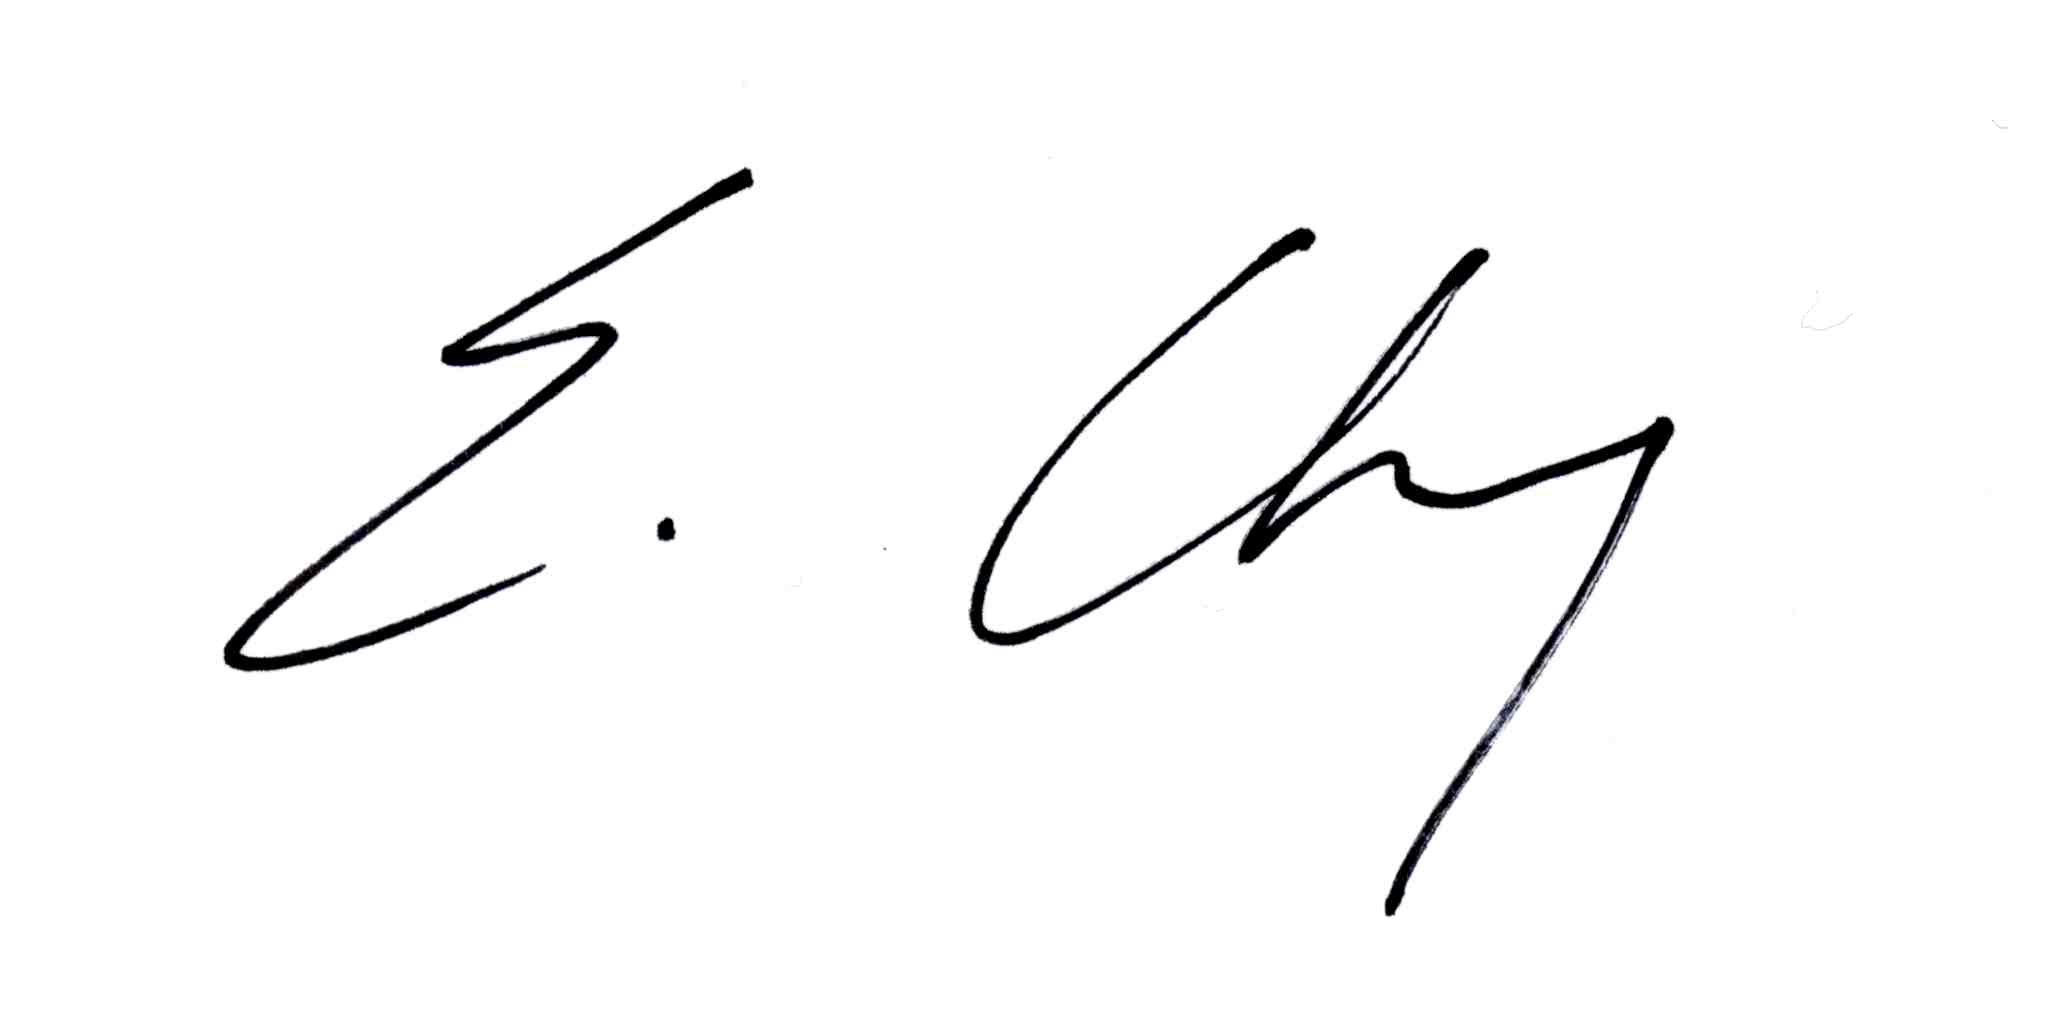 E. Chy